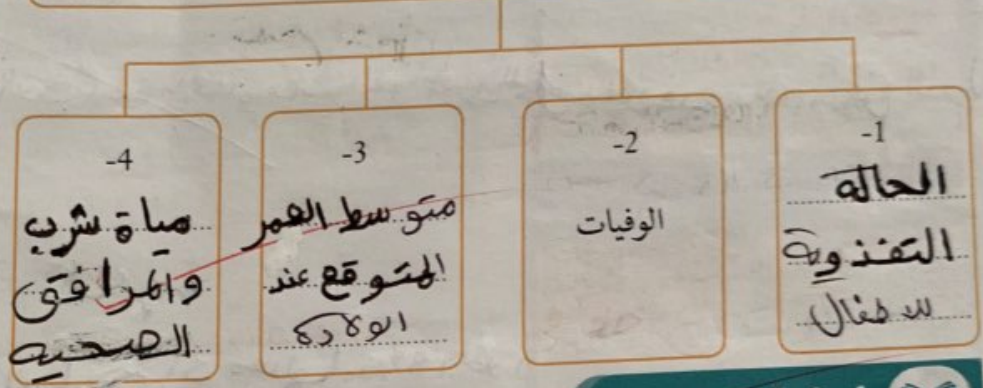 1-
الحالة
التغذوية
للاطفال
2-
الوفيات
3-
متوسط العمر
المتوقع عند
الولادة
4-
مياة شرب
والمرافق
الصحيه